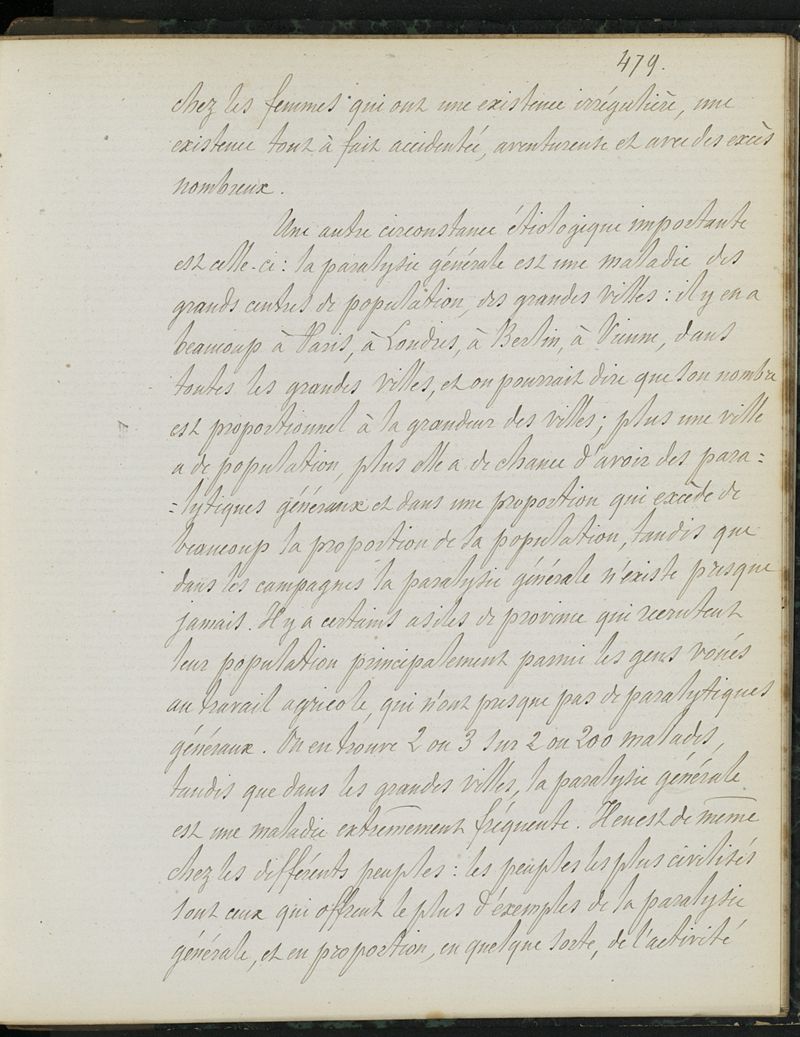 479.
chez les femmes qui ont une existence irrégulière, une
existence tout à fait accidentée, aventureuse et avec des excès
nombreux.
Une autre circonstance étiologique importante
est celle-ci : la paralysie générale est une maladie des
grands centres de population, des grandes villes : il y en a
beaucoup à Paris, à Londres, à Berlin, à Vienne, dans
toutes les grandes villes, et on pourrait dire que son nombre
est proportionnel à la grandeur des villes ; plus une ville
a de population, plus elle a de chance d'avoir des para=
=lytiques généraux et dans une proportion qui excède de
beaucoup la proportion de la population, tandis que
dans les campagnes la paralysie générale n'existe presque
jamais. Il y a certains asiles de province qui recrutent
leur population principalement parmi les gens voués
au travail agricole, qui n'ont presque pas de paralytiques
généraux. On en trouve 2 ou 3 sur 2 ou 200 malades,
tandis que dans les grandes villes, la paralysie générale
est une maladie extrêmement fréquente. Il en est de même
chez les différents peuples : les peuples les plus civilisés
sont ceux qui offrent le plus d'exemples de la paralysie
générale, et en proportion, en quelque sorte, de l'activité